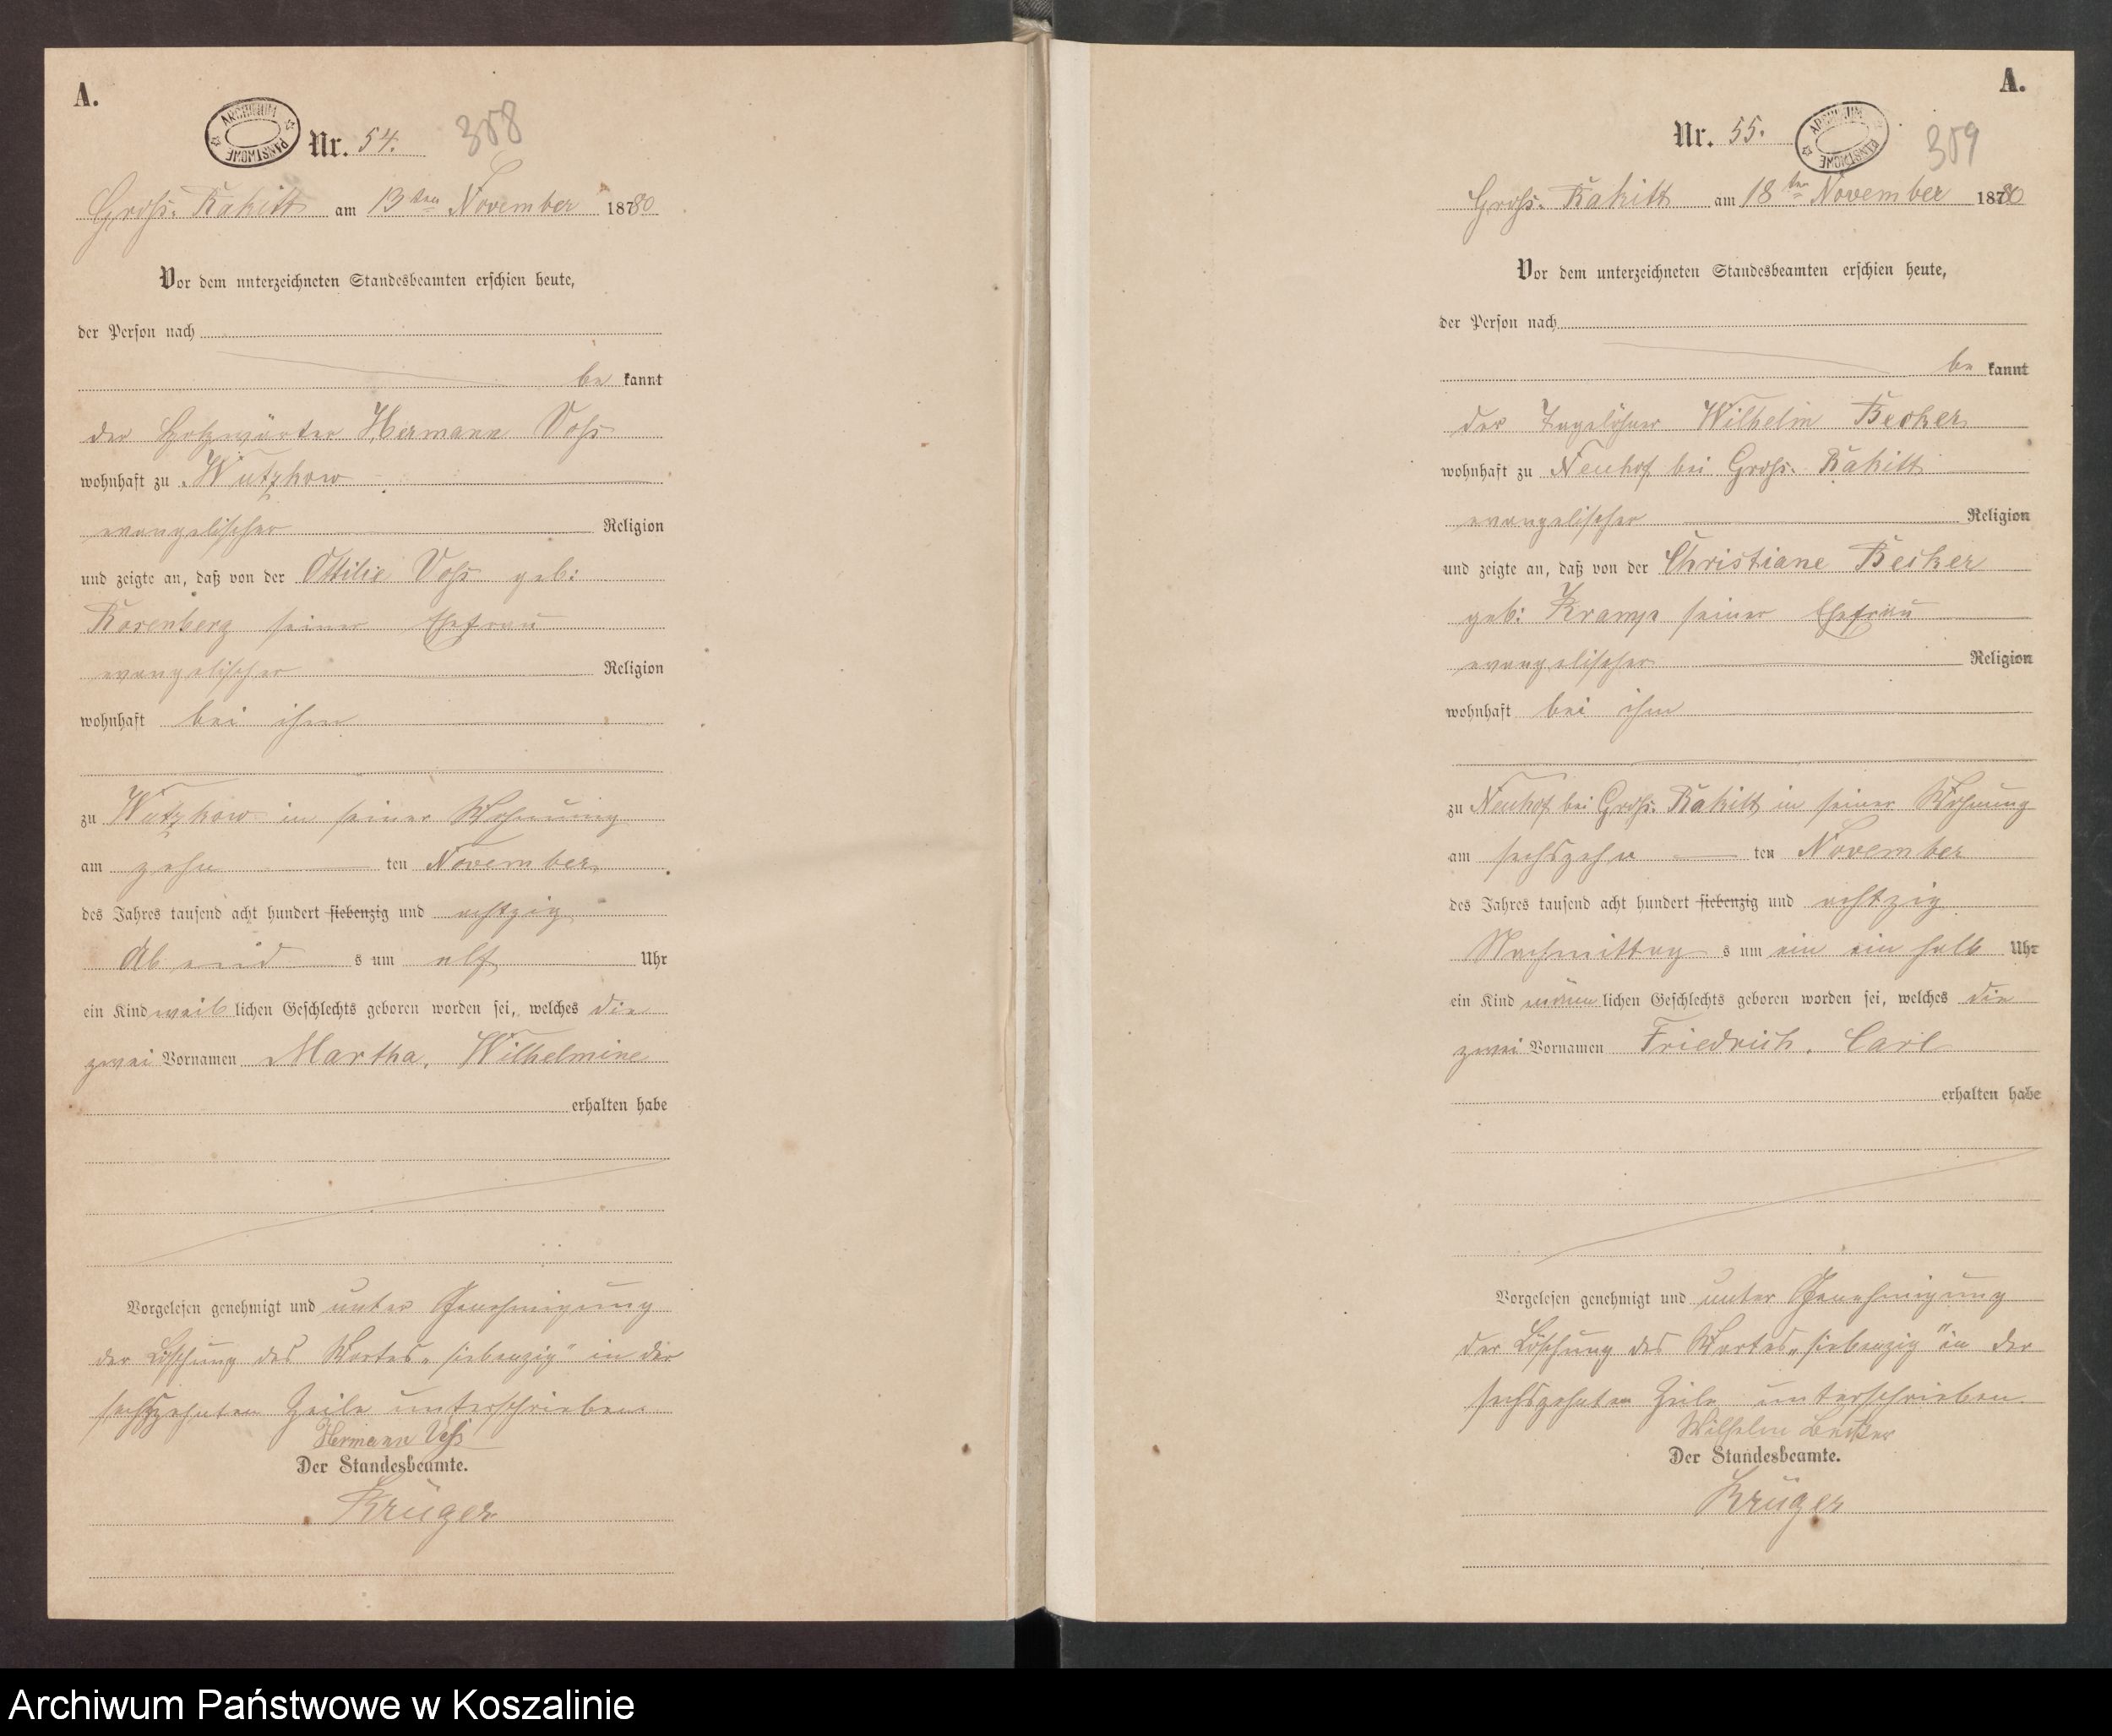 A.
ARCHIWUM PAŃSTWOWE
Nr. 54.
358
Gross-Rakitt am 13ten November 1880
Vor dem unterzeichneten Standesbeamten erschien heute,
der Person nach
be kannt
der Holzwärter Hermann Voss
wohnhaft zu Wutzkow
evangelischer Religion
und zeigte an, daß von der Ottilie Voss geb:
seiner Ehefrau
evangelischer Religion
wohnhaft bei ihm
zu Wutzkow in seiner Wohnung
am zehn ten November
des Jahres tausend acht hundert siebenzig und achtzig
Abend s um elf Uhr
ein Kind weib lichen Geschlechts geboren worden sei, welches die
zwei Vornamen Martha, Wilhelmine
erhalten habe
Vorgelesen genehmigt und unter Genehmigung
der Löschung des Wortes „siebenzig" in der
sechszehnten Zeile unterschrieben
Hermann Voß
Der Standesbeamte.
Krüger
A.
Nr. 55.
ARCHIWUM PAŃSTWOWE
359
Gross-Rakitt am 18ten November 1880
Vor dem unterzeichneten Standesbeamten erschien heute,
der Person nach
be kannt
der Tagelöhner Wilhelm Becker
wohnhaft zu Neuhof bei Gross-Rakitt
evangelischer Religion
und zeigte an, daß von der Christiane Becker
geb: Kramp seiner Ehefrau
evangelischer Religion
wohnhaft bei ihm
zu Neuhof bei Gross-Rakitt in seiner Wohnung
am sechszehn ten November
des Jahres tausend acht hundert siebenzig und achtzig
Nachmittag s um ein ein halb Uhr
ein Kind männ lichen Geschlechts geboren worden sei, welches die
zwei Vornamen Friedrich, Carl
erhalten habe
Vorgelesen genehmigt und unter Genehmigung
der Löschung des Wortes „siebenzig" in der
sechszehnten Zeile unterschrieben.
Wilhelm Becker
Der Standesbeamte.
Krüger
Archiwum Państwowe w Koszalinie